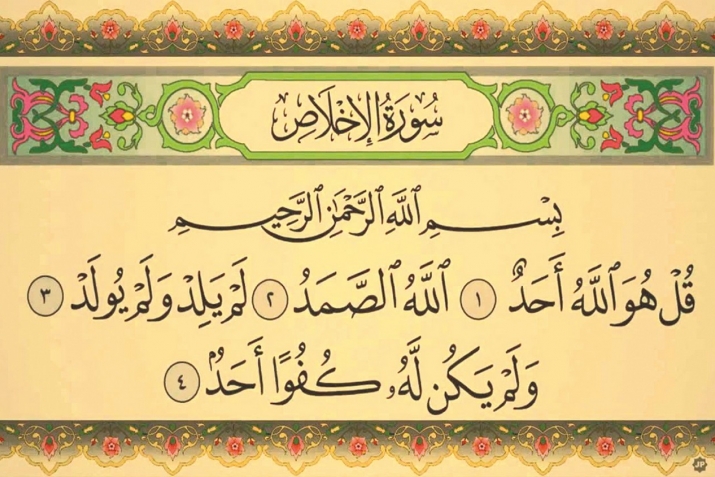 سُورَةُ الإِخْلَاصِ
بِسْمِ ٱللَّهِ ٱلرَّحْمَٰنِ ٱلرَّحِيمِ
قُلْ هُوَ ٱللَّهُ أَحَدٌ ١ ٱللَّهُ ٱلصَّمَدُ ٢ لَمْ يَلِدْ وَلَمْ يُولَدْ ٣
وَلَمْ يَكُن لَّهُۥ كُفُوًا أَحَدٌۢ ٤
JP